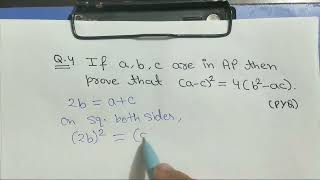 Q.4 If a,b,c are in AP then
prove that (a-c)² = 4(b²-ac).
(PYQ)
2b = a+c
on sq. both sides,
(2b)² = (